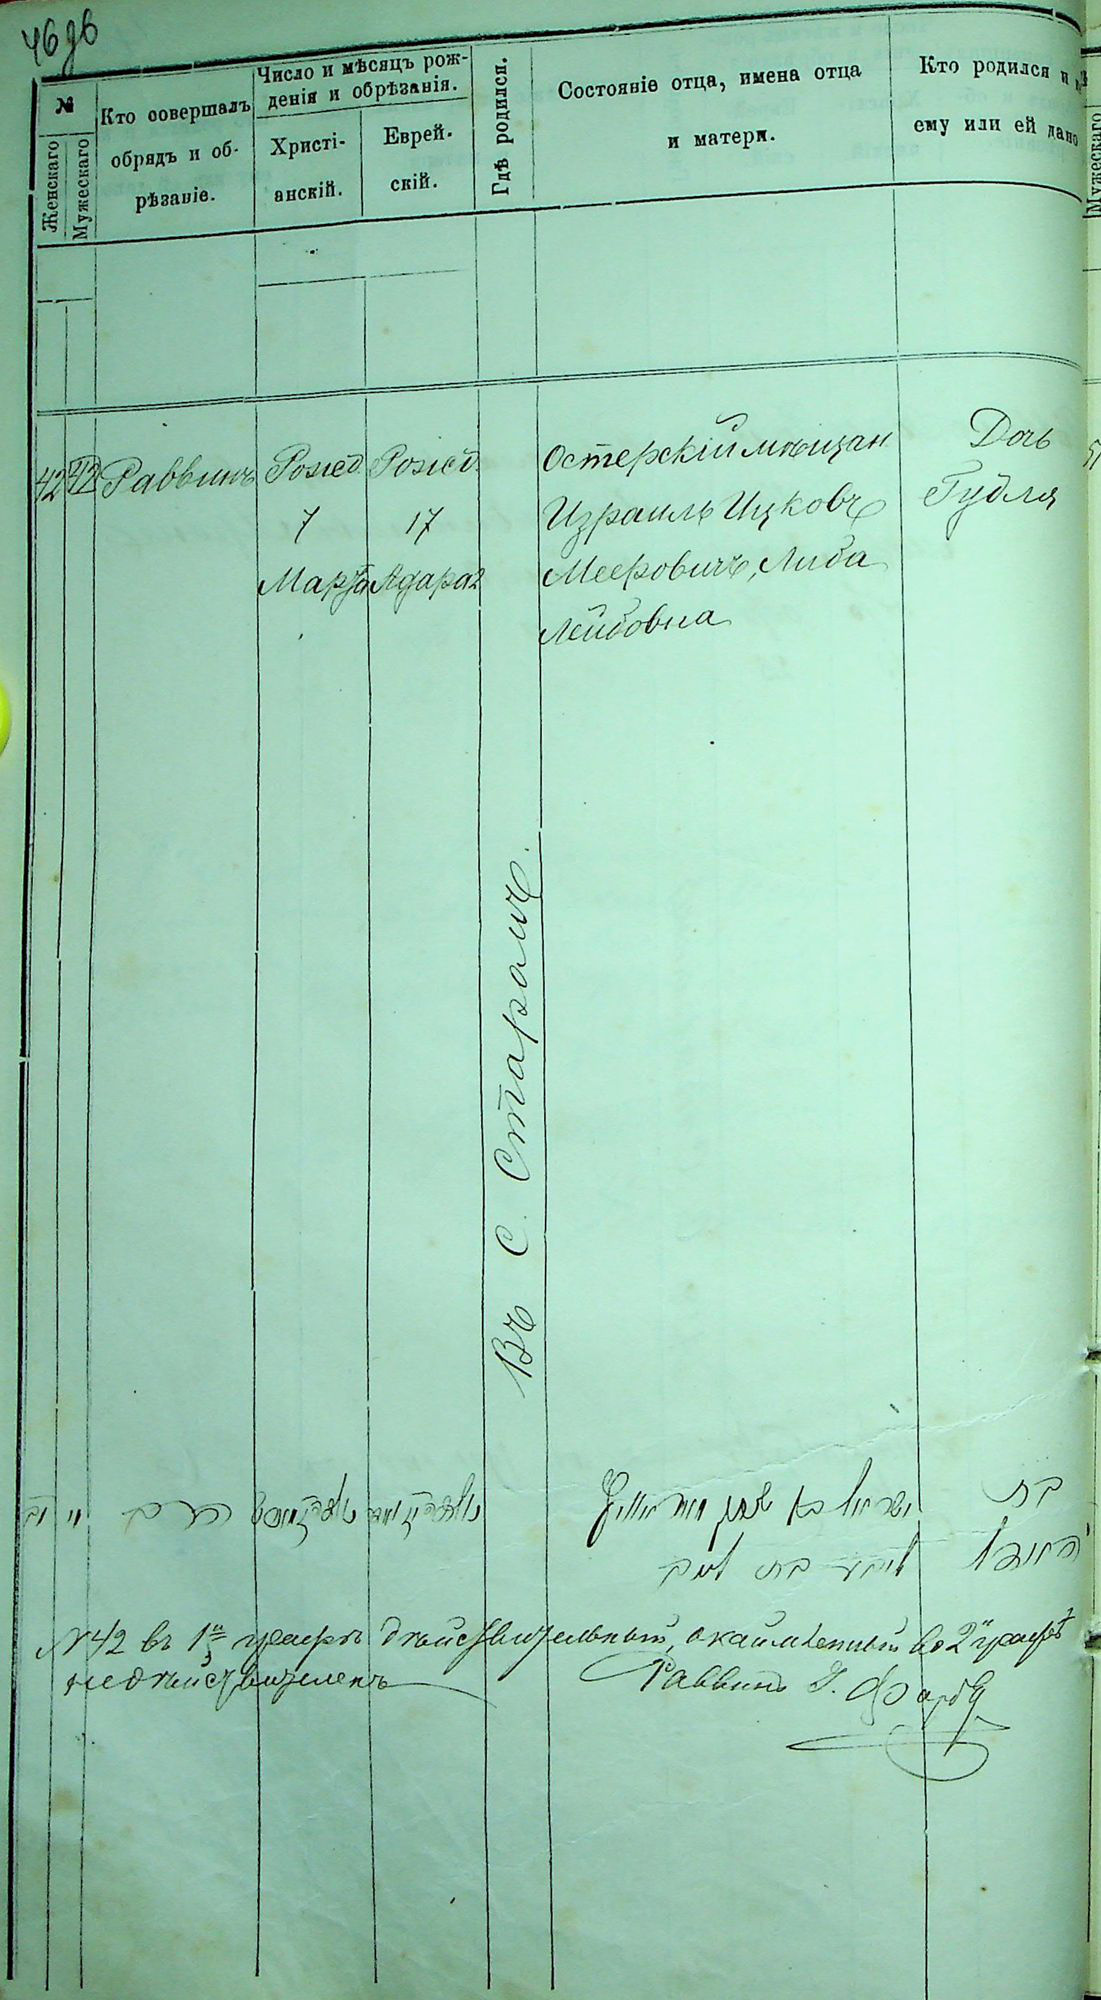 46об
№
Женскаго
Мужескаго
Кто совершалъ
обрядъ и об-
рѣзаніе.
Число и мѣсяцъ рож-
денія и обрѣзанія.
Христі-
анскій.
Еврей-
скій.
Гдѣ родился.
Состояніе отца, имена отца
и матери.
Кто родился и
ему или ей дано
Мужескаго
42
42
Раввинъ
Рожед
7
Марта
Рожед
17
Адара 2
Въ с. Старомъ.
Остерскій мѣщан
Израиль Ицковъ
Мееровичъ, Либа
Лейбовна
Дочь
Гудля
בת
№ 42 въ 1й графѣ дѣйствительный, окаймленный во 2й графѣ
недѣйствителенъ
Раввинъ